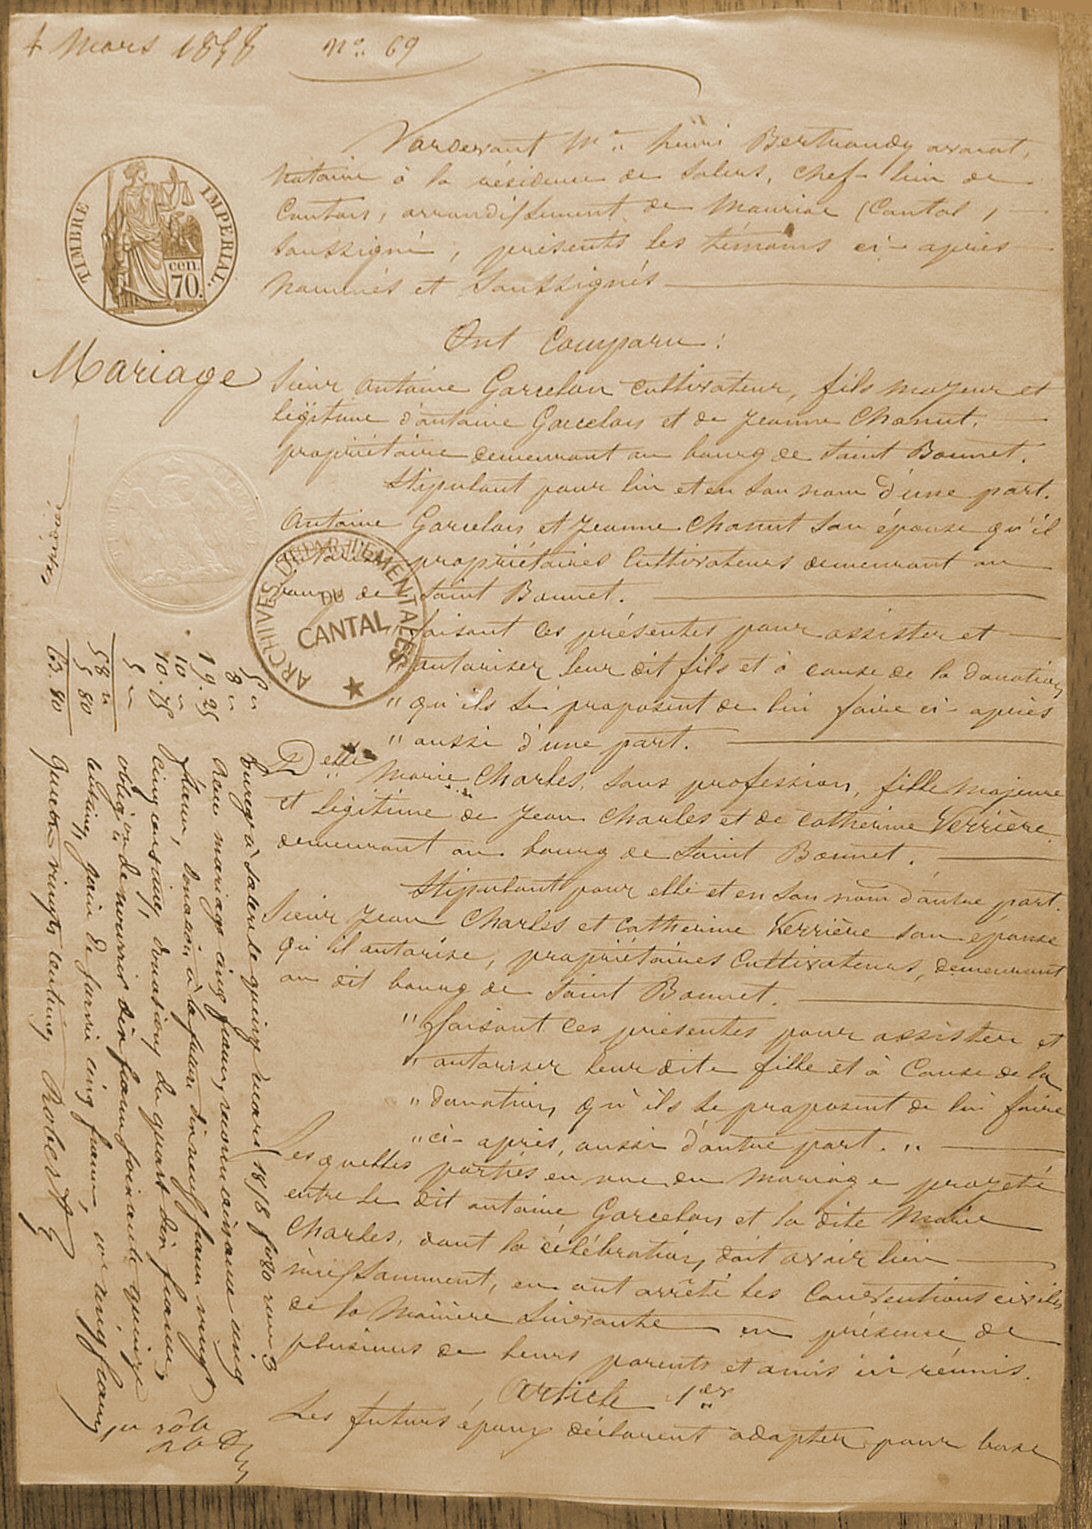 4 Mars 1858 nº. 69
TIMBRE IMPERIAL.
CEN.
70.
Mariage
ARCHIVES DEPARTEMENTALES
DU
CANTAL
Pardevant Me. henri Bertrandy avocat,
Notaire à la résidence de Salers, chef-lieu de
Canton, arrondissement de Mauriac (Cantal)
Soussigné, présents les témoins ci-après
Nommés et Soussignés
Ont Comparu :
Sieur Antoine Garcelon cultivateur, fils majeur et
légitime d'antoine Garcelon et de Jeanne Chanut,
propriétaire demeurant au bourg de Saint Bonnet.
Stipulant pour lui et en son nom d'une part.
Antoine Garcelon et Jeanne Chanut son épouse qu'il
propriétaires Cultivateurs demeurant au
bourg de Saint Bonnet.
faisant ces présentes pour assister et
" autoriser leur dit fils et à cause de la donation
" qu'ils se proposent de lui faire ci-après
" aussi d'une part.
Delle Marie Charles, sans profession, fille majeure
et légitime de Jean Charles et de Catherine Verrière
demeurant au bourg de Saint Bonnet.
Stipulant pour elle et en son nom d'autre part.
Sieur Jean Charles et Catherine Verrière son épouse
qu'il autorise, propriétaires Cultivateurs, demeurant
au dit bourg de Saint Bonnet.
" faisant ces présentes pour assister et
" autoriser leur dite fille et à Cause de la
" donation qu'ils se proposent de lui faire
" ci-après, aussi d'autre part. "
Lesquelles parties en vue du Mariage projeté
entre le dit antoine Garcelon et la dite Marie
Charles, dont la célébration doit avoir lieu
incessamment, en ont arrêté les Conventions civiles
de la Manière Suivante en présence de
plusieurs de leurs parents et amis ici réunis.
Article 1er
Les futurs époux déclarent adopter pour base
5 "
3 "
19. 25
10 "
10. 75
5 "
58 "
5 80
63. 80
à Salers le quinze mars 1858 fo 80
mariage cinq francs,
dix neuf francs vingt
cinq centimes, donation du quart dix francs
de nourrir dix francs soixante quinze
cinq francs,
quatre vingts centimes Robert
1er rôle